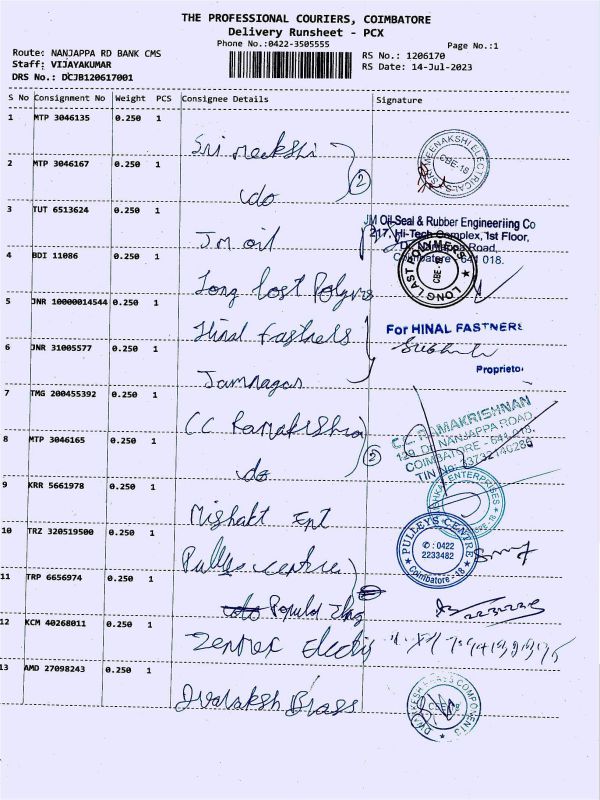 THE PROFESSIONAL COURIERS, COIMBATORE
Delivery Runsheet - PCX
Phone No.:0422-3505555
Page No.:1
Route: NANJAPPA RD BANK CMS
Staff: VIJAYAKUMAR
DRS No.: DCJB120617001
RS No.: 1206170
RS Date: 14-Jul-2023
S No Consignment No Weight PCS Consignee Details Signature
1 MTP 3046135 0.250 1 Sri meekshi
SRI MEENAKSHI ELECTRICALS CBE-18
2 MTP 3046167 0.250 1 do 2
3 TUT 6513624 0.250 1 JM oil
JM Oil Seal & Rubber Engineeriing Co
217, Hi-Tech Complex, 1st Floor,
Dr. Nanjappa Road,
Coimbatore - 641 018.
4 BDI 11086 0.250 1 Long Lost Polymrs
LONG LAST POLYMERS CBE-18
5 JNR 10000014544 0.250 1 Hinal fastners
For HINAL FASTNERS
Proprietor
6 JNR 31005577 0.250 1 Jamnagar
7 TMG 200455392 0.250 1 CC Ramakrishna
C.C. RAMAKRISHNAN
139, DR. NANJAPPA ROAD,
COIMBATORE - 641 018.
TIN NO: 33732140286
8 MTP 3046165 0.250 1 do 2
9 KRR 5661978 0.250 1 Mishakt Ent
ENTERPRISES
10 TRZ 320519500 0.250 1 Pulleys centre
PULLEYS CENTRE
✆ : 0422
2233482
Coimbatore - 18
11 TRP 6656974 0.250 1 Popular
12 KCM 40268011 0.250 1 Zenrex Electric
13 AMD 27098243 0.250 1 Dwaraksh Brass
DWARKESH BRASS COMPONENTS